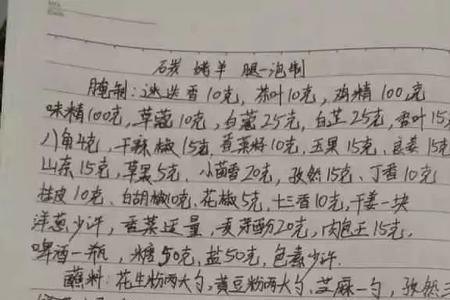 碳烤羊腿-泡制
腌制：迷迭香10克，茶叶10克，鸡精100克
味精100克，草蔻10克，白蔻25克，白芷25克，香叶15
八角4克，干辣椒15克，香菜籽10克，玉果15克，良姜15克
山奈15克，草果5克，小茴香20克，孜然15克，丁香10克
桂皮10克，白胡椒10克，花椒5克，十三香10克，干姜一块
洋葱少许，香菜适量，麦芽酚20克，肉包王15克，
啤酒一瓶，糖50克，盐50克，色素少许．
蘸料：花生粉两大勺，黄豆粉两大勺，芝麻一勺，孜然